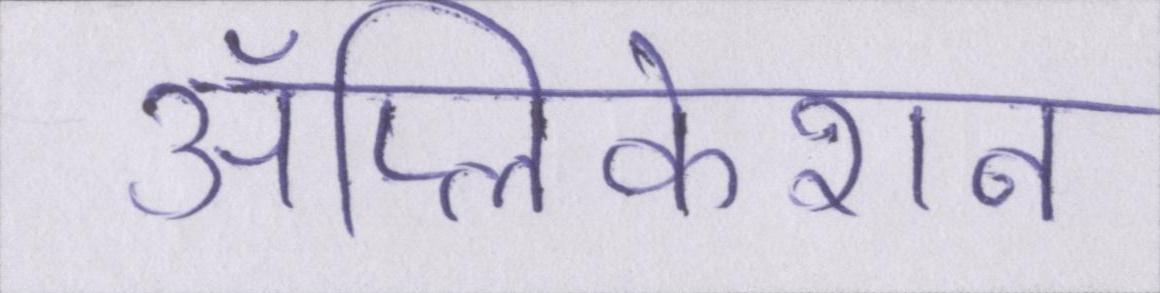 ॲप्लिकेशन